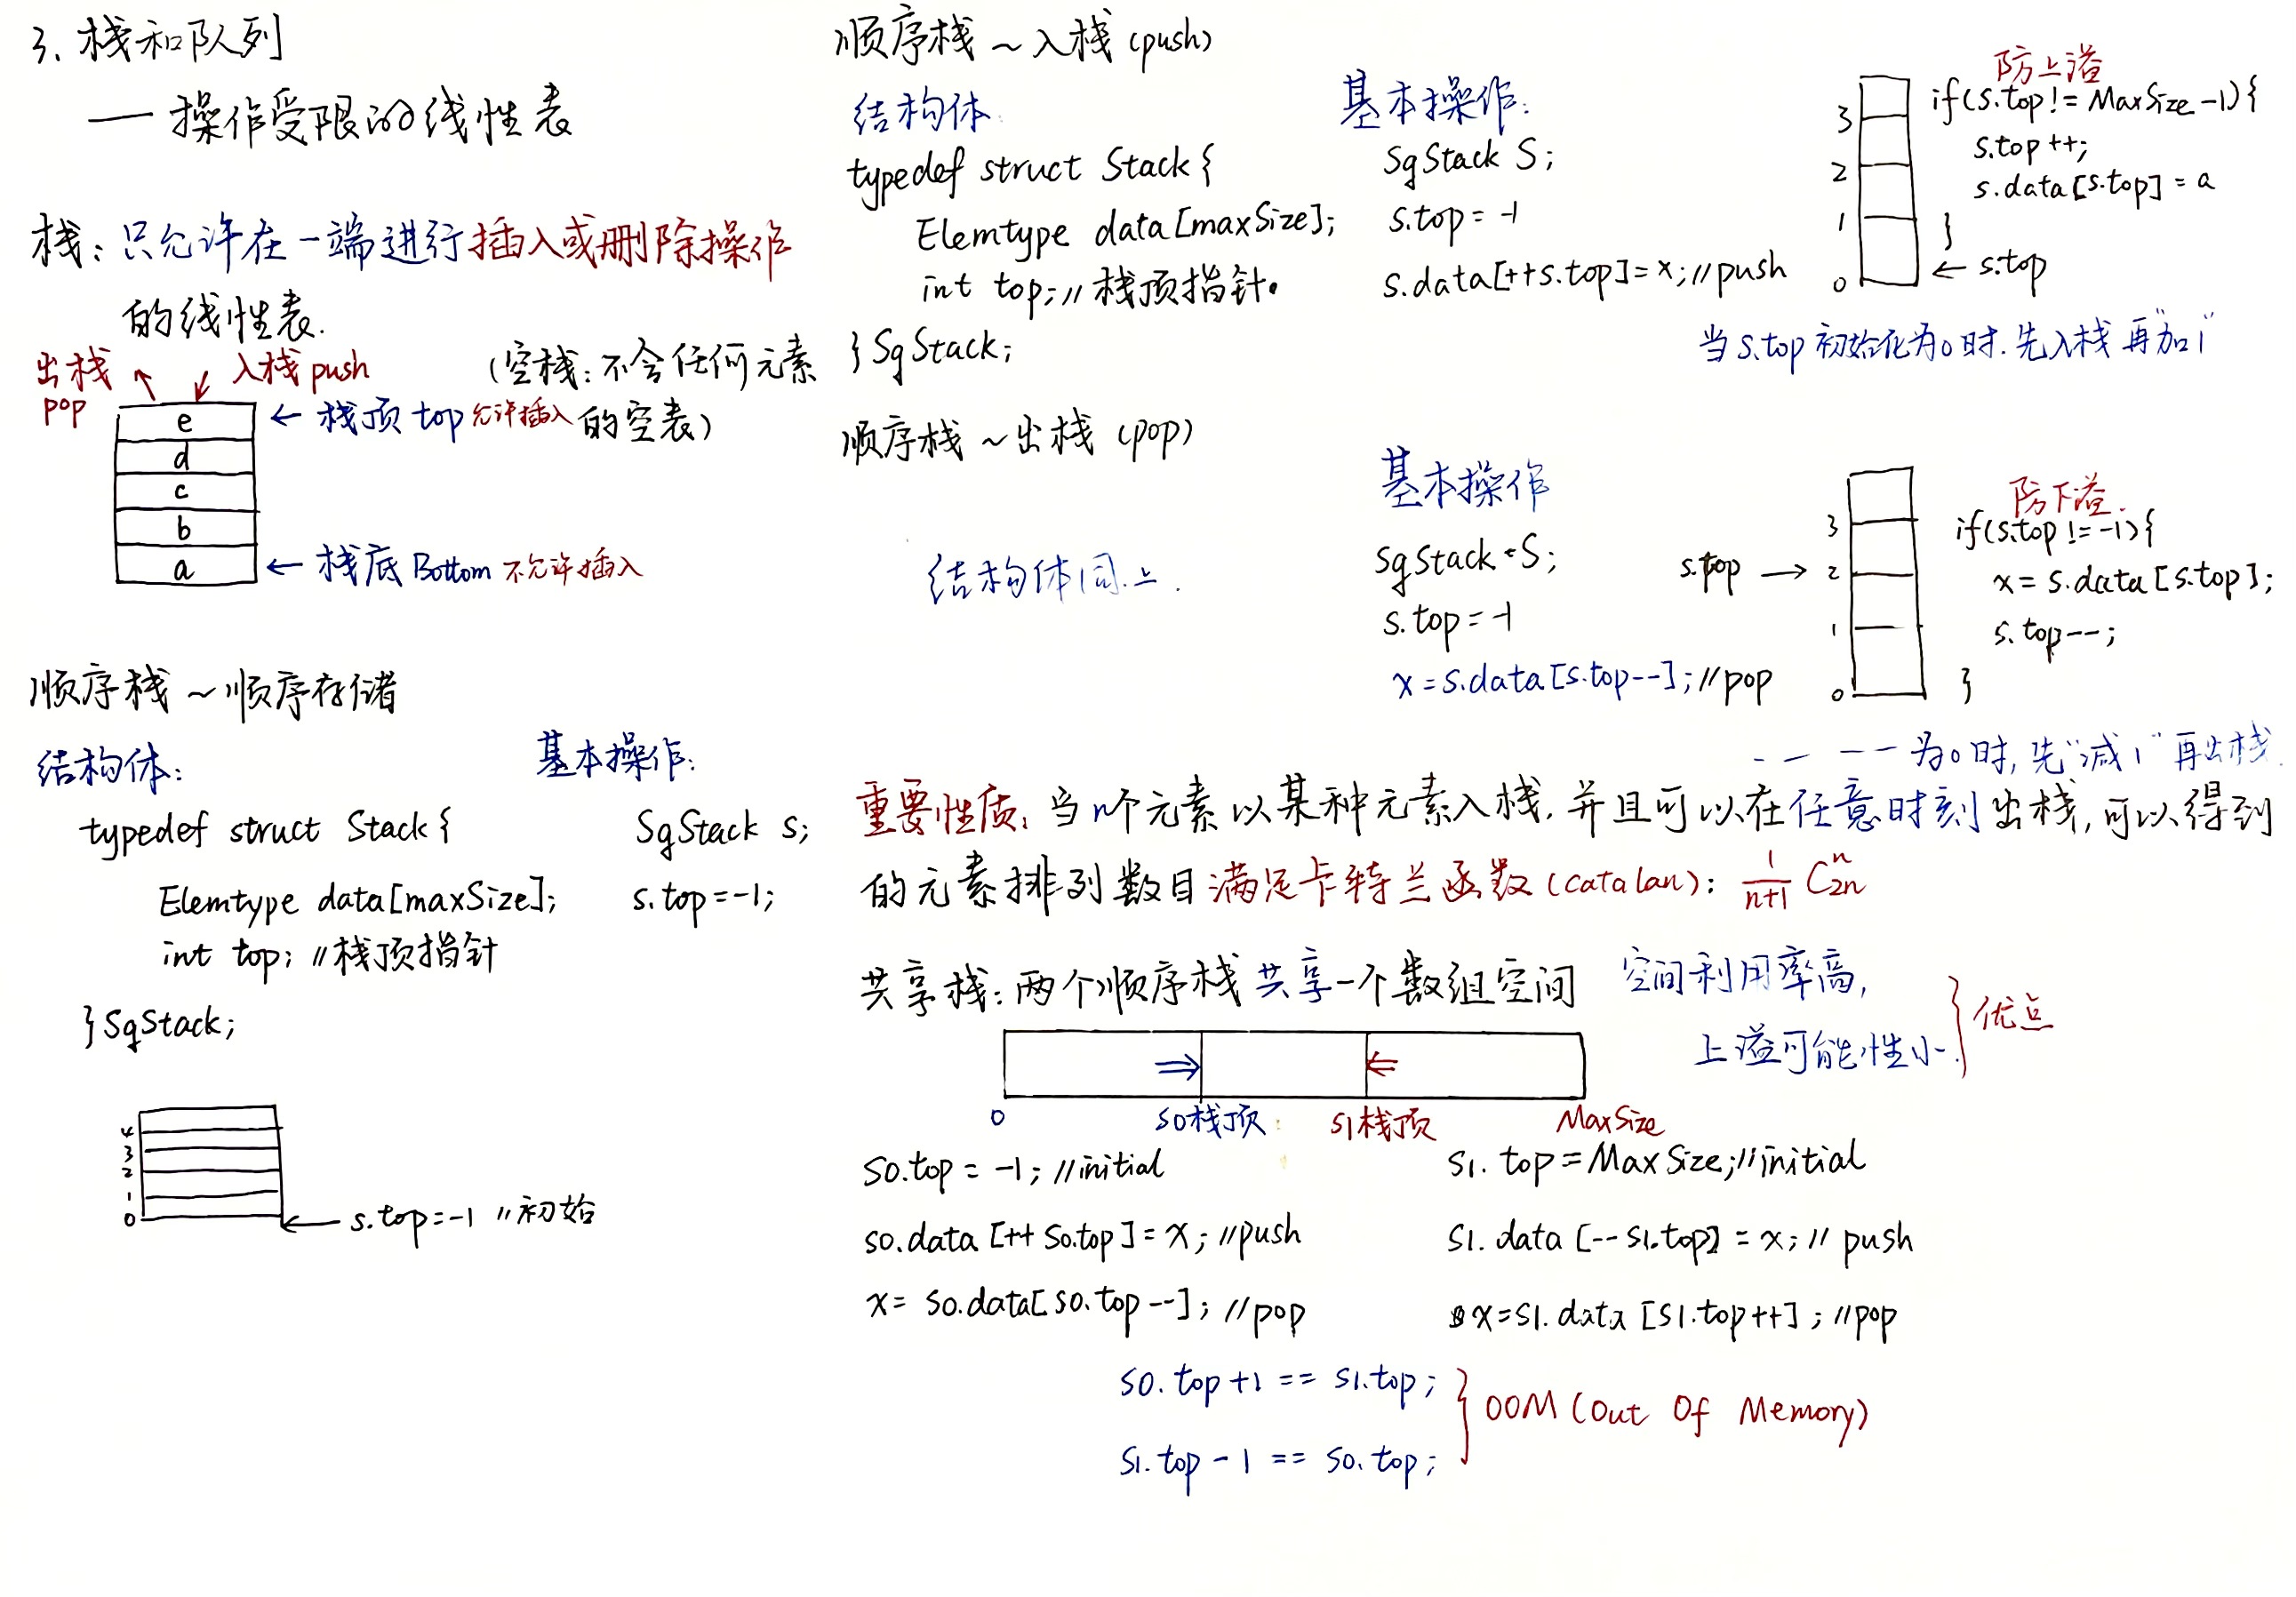 3. 栈和队列
— 操作受限的线性表
栈：只允许在一端进行插入或删除操作
的线性表.
出栈 pop
入栈 push
(空栈：不含任何元素
的空表)
e ← 栈顶 top 允许插入
d
c
b
a ← 栈底 Bottom 不允许插入
顺序栈 ~ 顺序存储
结构体：
typedef struct Stack {
Elemtype data[maxSize];
int top; // 栈顶指针
} SqStack;
基本操作：
SqStack s;
s.top = -1;
4
3
2
1
0
← s.top = -1 // 初始
顺序栈 ~ 入栈 (push)
结构体
typedef struct Stack {
Elemtype data[maxSize];
int top; // 栈顶指针.
} SqStack;
基本操作：
SqStack S;
s.top = -1
s.data[++s.top] = x; // push
3
2
1
0
← s.top
防上溢
if(s.top != MaxSize -1) {
s.top ++;
s.data[s.top] = a
}
当 s.top 初始化为0时. 先入栈 再"加1"
顺序栈 ~ 出栈 (pop)
结构体同上.
基本操作
SqStack S;
s.top = -1
x = s.data[s.top--]; // pop
s.top →
3
2
1
0
防下溢.
if(s.top != -1) {
x = s.data[s.top];
s.top--;
}
— — — 为0时, 先"减1" 再出栈.
重要性质: 当n个元素以某种元素入栈, 并且可以在任意时刻出栈, 可以得到
的元素排列数目满足卡特兰函数 (catalan): 1/(n+1) C_{2n}^{n}
共享栈：两个顺序栈共享一个数组空间
空间利用率高,
上溢可能性小.
} 优点
⇒ ⇐
0 S0栈顶 S1栈顶 MaxSize
S0.top = -1; //initial
S0.data [++ S0.top] = x; //push
x = S0.data[S0.top --]; //pop
S1.top = MaxSize; //initial
S1.data [-- S1.top] = x; // push
x = S1.data [S1.top ++]; //pop
S0.top + 1 == S1.top;
S1.top - 1 == S0.top;
} OOM (Out Of Memory)